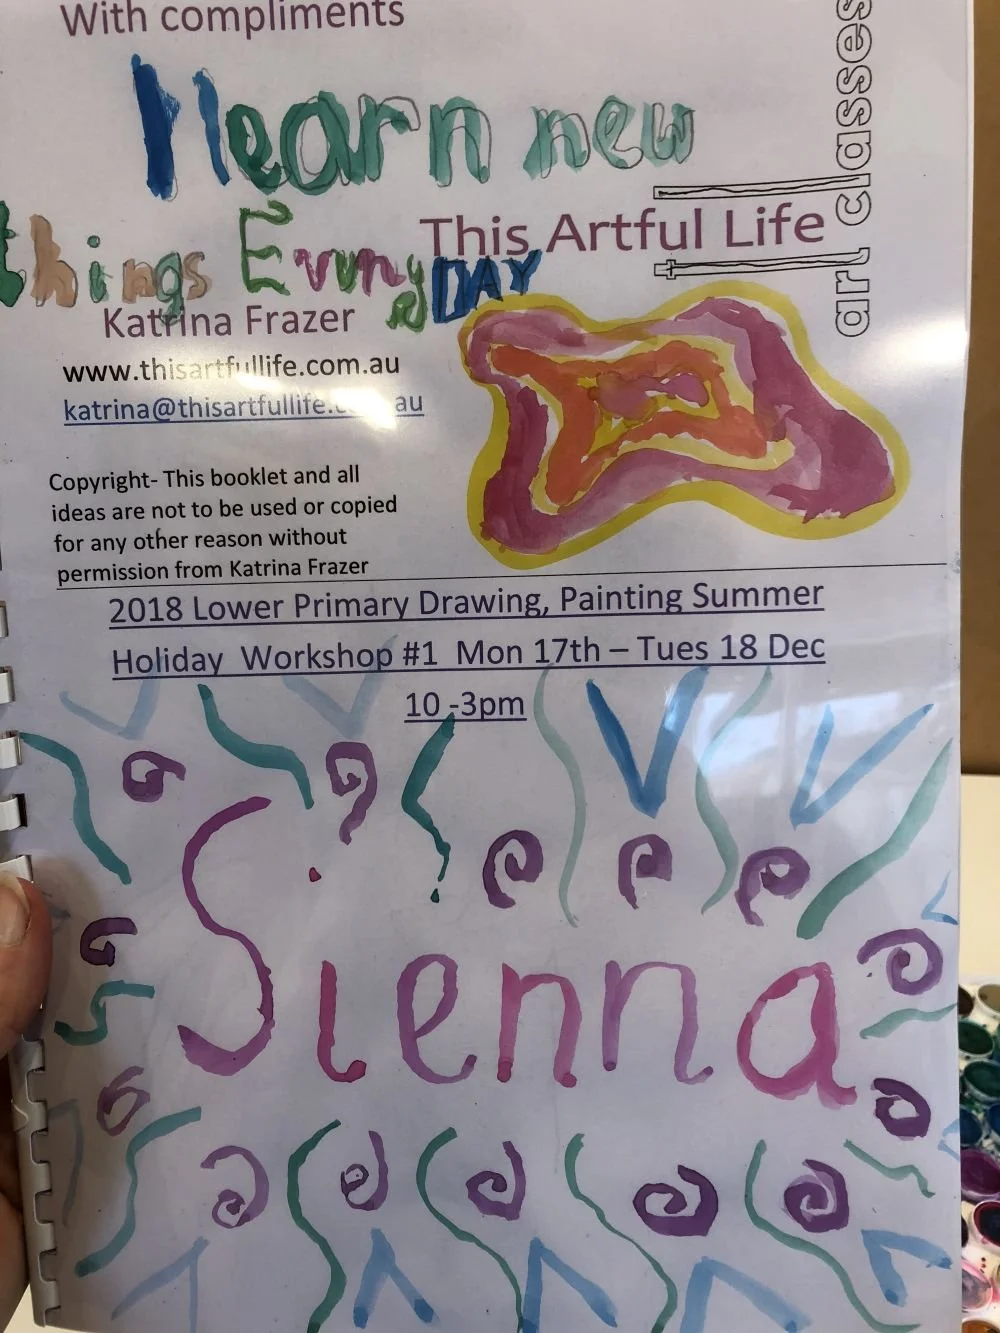 With compliments
I learn new
things EvrryDAY
This Artful Life
art classes
Katrina Frazer
www.thisartfullife.com.au
katrina@thisartfullife. au
Copyright- This booklet and all
ideas are not to be used or copied
for any other reason without
permission from Katrina Frazer
2018 Lower Primary Drawing, Painting Summer
Holiday Workshop #1 Mon 17th – Tues 18 Dec
10 -3pm
Sienna